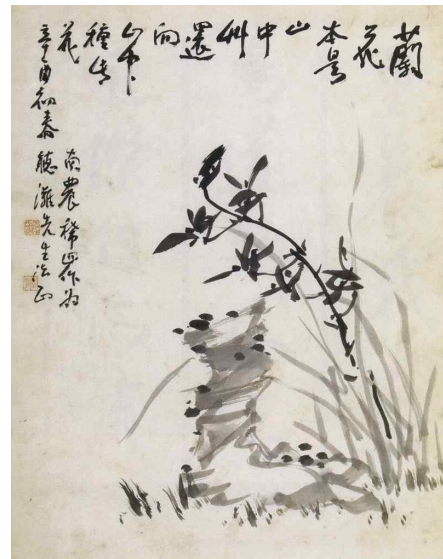 蘭
花
本是
山
中
艸
還
向
山中
種此
花
辛酉初春
南農作為
聽灘先生法正